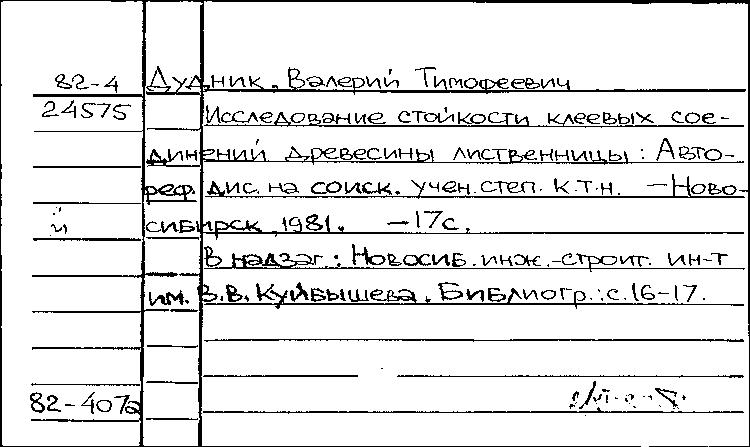 82-4 Дудник, Валерий Тимофеевич
24575 Исследование стойкости клеевых сое-
динений древесины лиственницы: Авто-
реф. дис. на соиск. учен. степ. к.т.н. —Ново-
й сибирск, 1981. —17с.
В надзаг.: Новосиб. инж.-строит. ин-т
им. В.В. Куйбышева. Библиогр.: с. 16-17.
82-407а